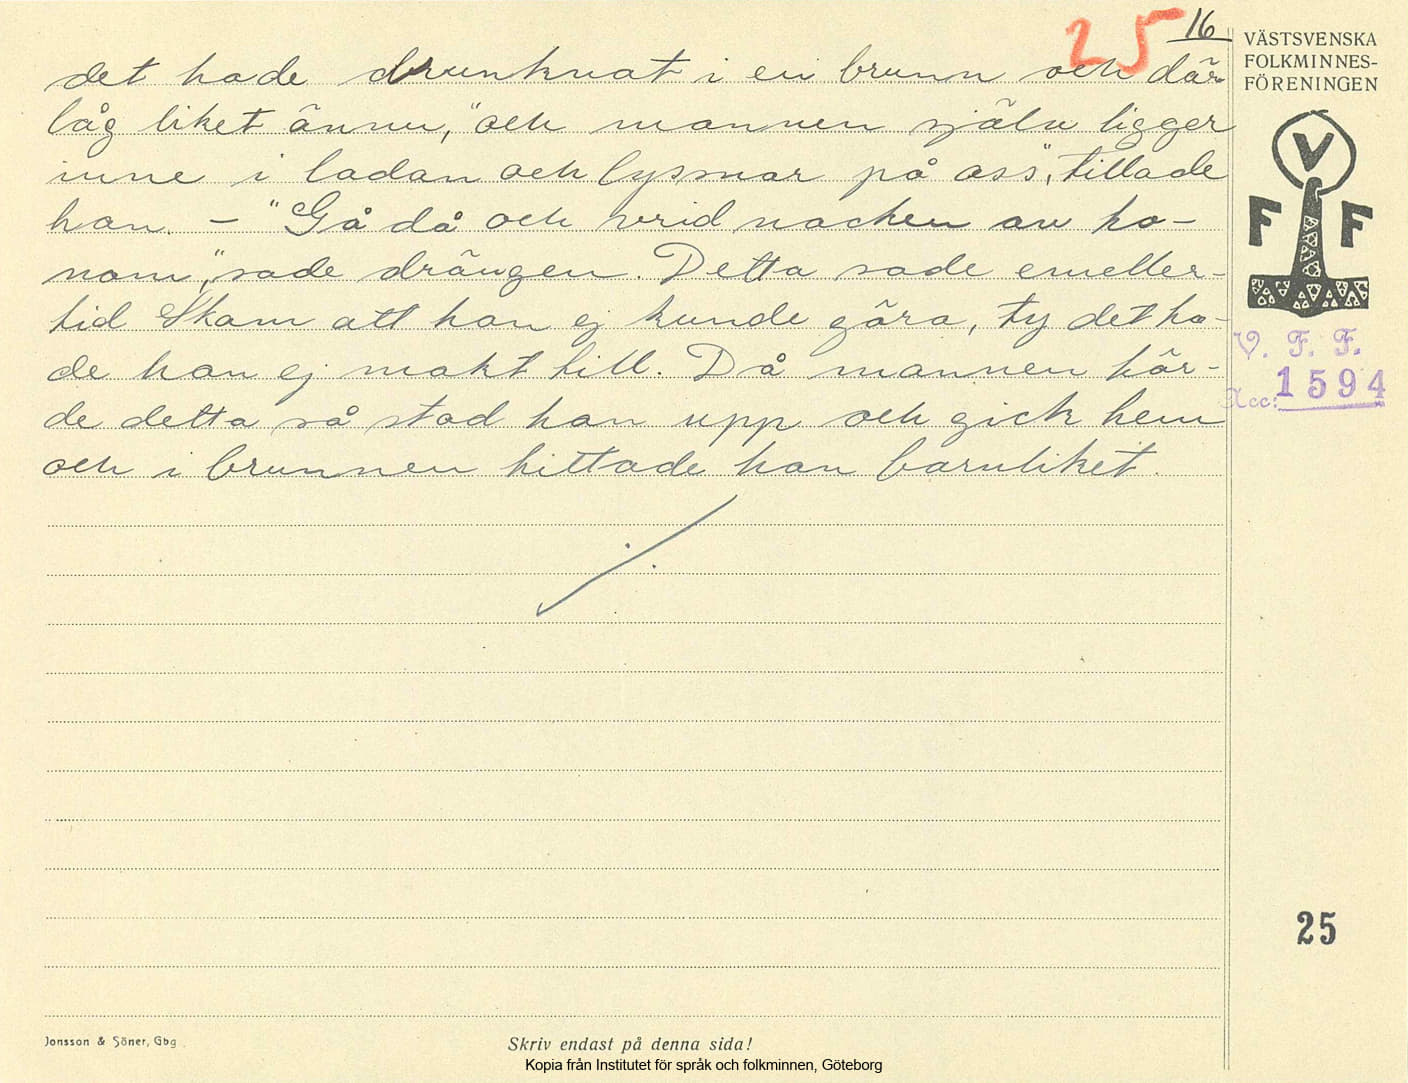 25 16
det hade drunknat i en brunn och där
låg liket ännu," och mannen själv ligger
inne i ladan och lysmar på oss", tillade
han. – "Gå då och vrid nacken av ho-
nom," sade drängen. Detta sade emeller-
tid Skam att han ej kunde göra, ty det ha-
de han ej makt till. Då mannen hör-
de detta så stod han upp och gick hem
och i brunnen hittade han barnliket.
VÄSTSVENSKA
FOLKMINNES-
FÖRENINGEN
V
F F
V. F. F.
Acc: 1594
25
Jonsson & Söner, Gbg
Skriv endast på denna sida!
Kopia från Institutet för språk och folkminnen, Göteborg